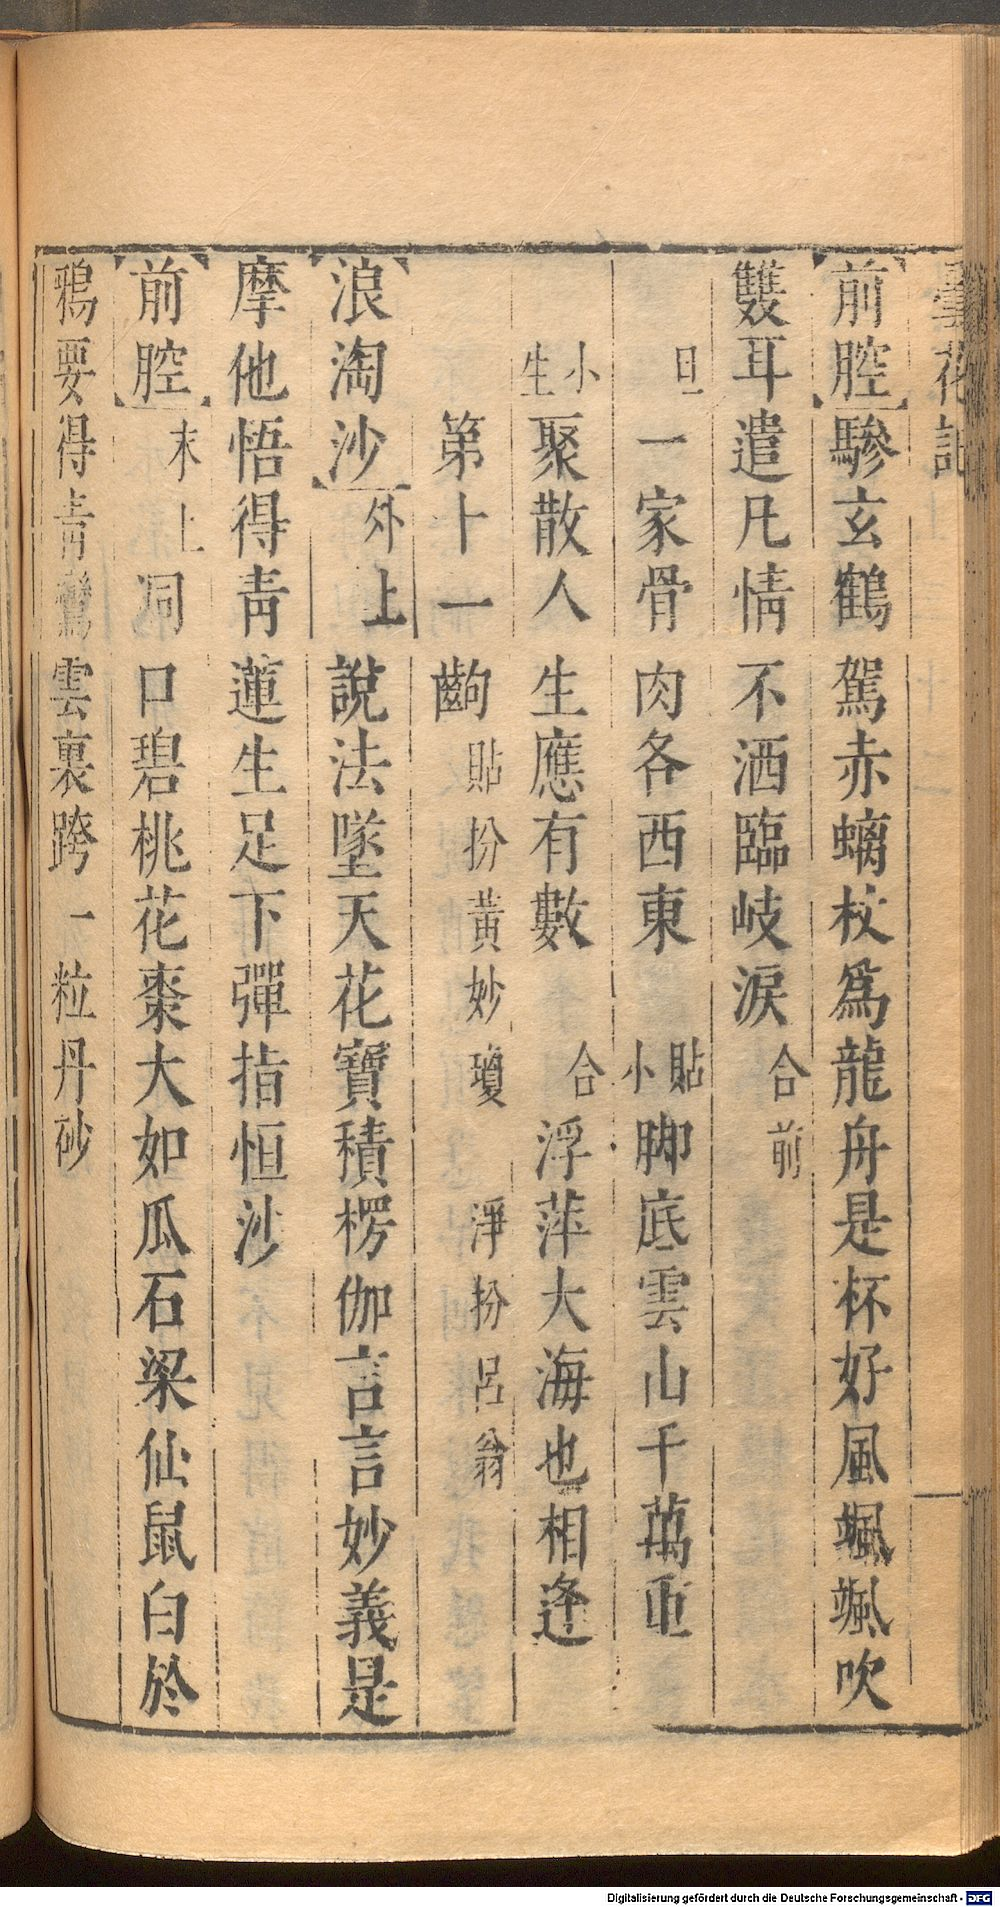 曇花記
前腔驂玄鶴駕赤螭杖爲龍舟是杯好風颯颯吹
雙耳遣凡情不洒臨岐淚合前
旦一家骨肉各西東貼小脚底雲山千萬重
小生聚散人生應有數合浮萍大海也相逢
第十一齣貼扮黃妙瓊 淨扮呂翁
浪淘沙外上說法墜天花寶積楞伽言言妙義是
摩他悟得青蓮生足下彈指恒沙
前腔末上洞口碧桃花棗大如瓜石梁仙鼠白於
鴉要得青鸞雲裏跨一粒丹砂
Digitalisierung gefördert durch die Deutsche Forschungsgemeinschaft - DFG